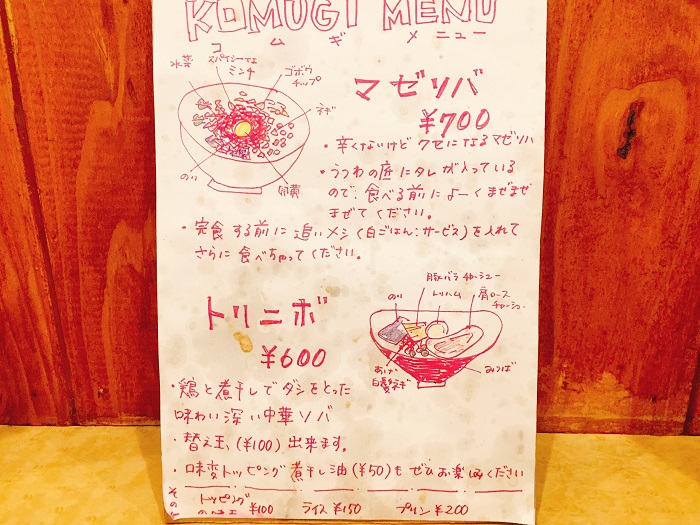 KOMUGI MENU
コムギ メニュー
水菜
スパイシーな
ミンチ
ゴボウ
チップ
ネギ
のり
卵黄
マゼソバ
¥700
・辛くないけど クセになるマゼソバ
・うつわの底にタレが入っている
ので、食べる前に よーくまぜまぜ
まぜてください。
・完食する前に 追いメシ(白ごはん:サービス)を入れて
さらに食べちゃってください。
トリニボ
¥600
のり
豚バラチャーシュー
トリハム
肩ロース
チャーシュー
あげ
白髪ネギ
みつば
・鶏と煮干しでダシをとった
味わい深い中華ソバ
・替え玉(¥100)出来ます。
・味変トッピング煮干し油(¥50)も ぜひお楽しみください
トッピング
¥100
ライス ¥150
プリン ¥200